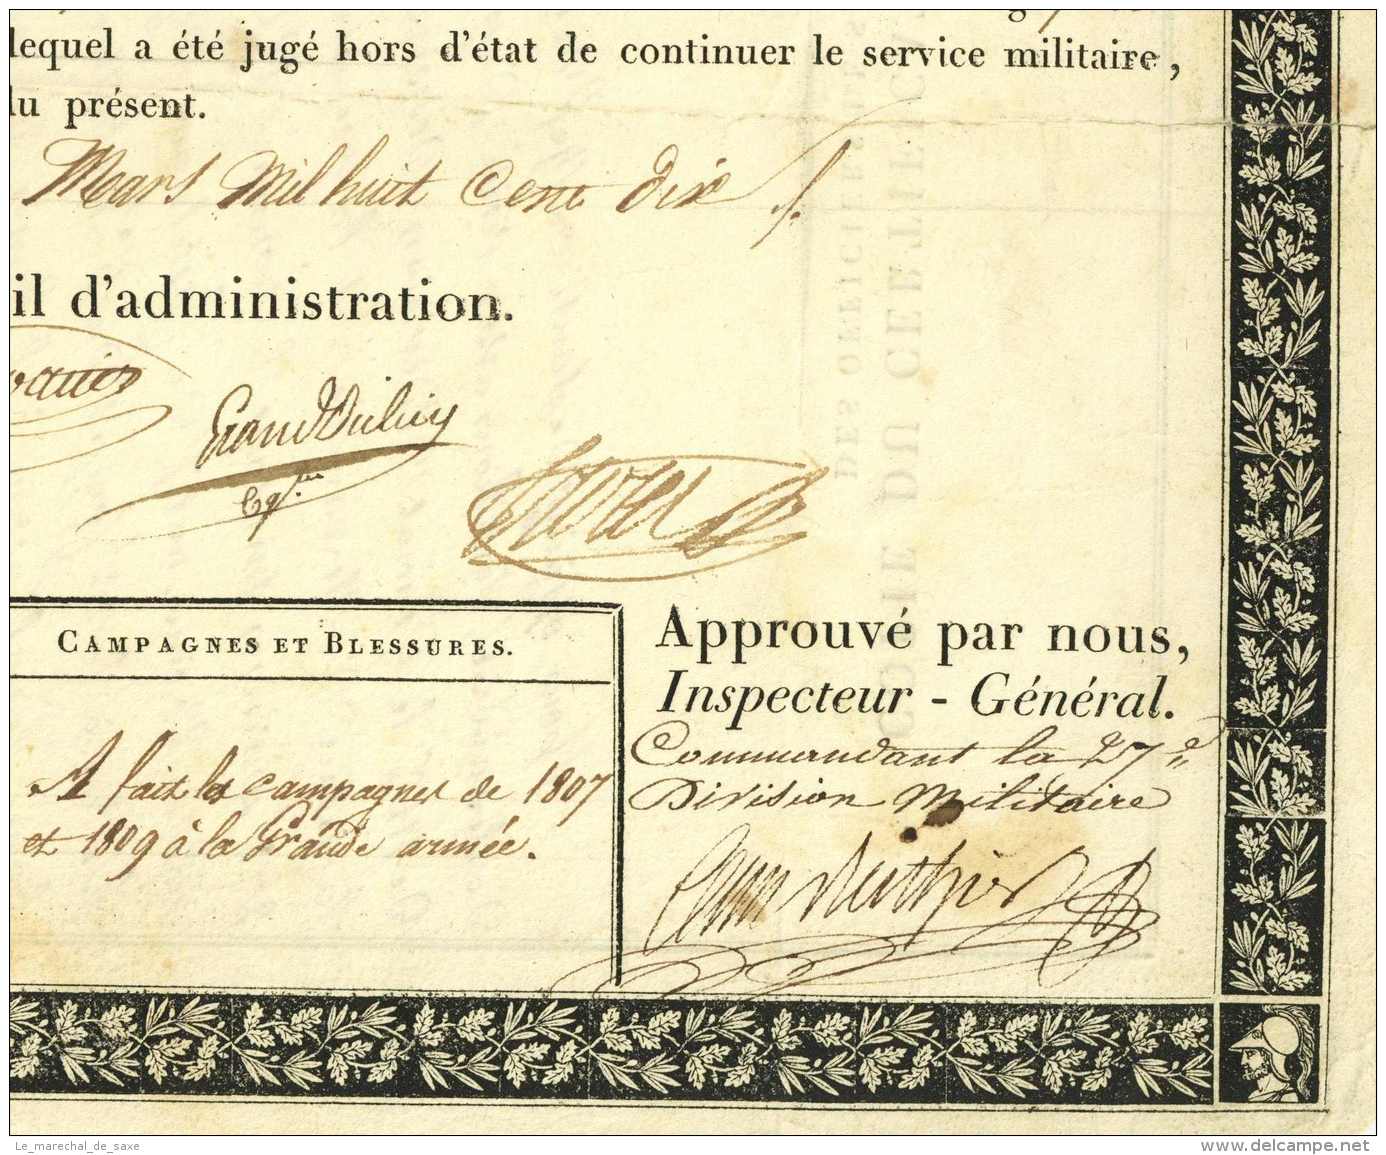 lequel a été jugé hors d'état de continuer le service militaire,
du présent.
Mars Mil huit Cent dix
il d'administration.
CAMPAGNES ET BLESSURES.
A fait les campagnes de 1807
et 1809 à la Grande armée.
Approuvé par nous,
Inspecteur - Général.
Commandant la 27e
Division Militaire
DES OFFICIERS
COPIE DU CERTIFIC
Le_marechal_de_saxe
www.delcampe.net